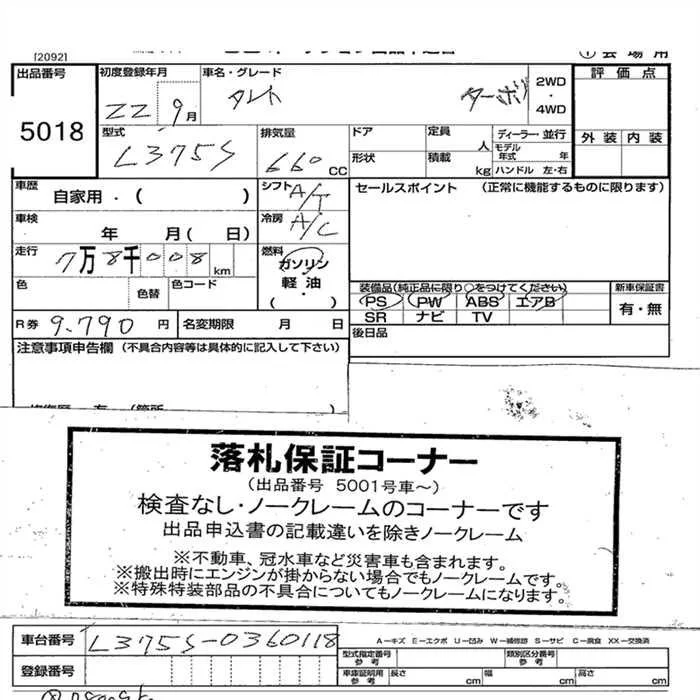 [2092]
① 会場用
出品番号 初度登録年月 車名・グレード 評価点
5018 22 9月 タント ターボ 2WD・4WD
型式 排気量 ドア 定員 人 ディーラー・並行 外装 内装
L375S 660CC 形状 積載 kg モデル年式 年
ハンドル 左・右
車歴 自家用・( ) シフト A/T セールスポイント (正常に機能するものに限ります)
車検 年 月( 日) 冷房 A/C
走行 7万8千008km 燃料 ガソリン 軽油・( )
色 色替 色コード 装備品(純正品に限り○をつけてください) 新車保証書
PS PW ABS エアB 有・無
SR ナビ TV
R券 9.790円 名変期限 月 日 後日品
注意事項申告欄 (不具合内容等は具体的に記入して下さい)
落札保証コーナー
(出品番号 5001号車~)
検査なし・ノークレームのコーナーです
出品申込書の記載違いを除きノークレーム
※不動車、冠水車など災害車も含まれます。
※搬出時にエンジンが掛からない場合でもノークレームです。
※特殊特装部品の不具合についてもノークレームになります。
A－キズ E－エクボ U－凹み W－補修跡 S－サビ C－腐食 XX－交換済
車台番号 L375S-0360118 型式指定番号 参考 類別区分番号 参考
登録番号 車庫証明用 参考 長さ cm 幅 cm 高さ cm